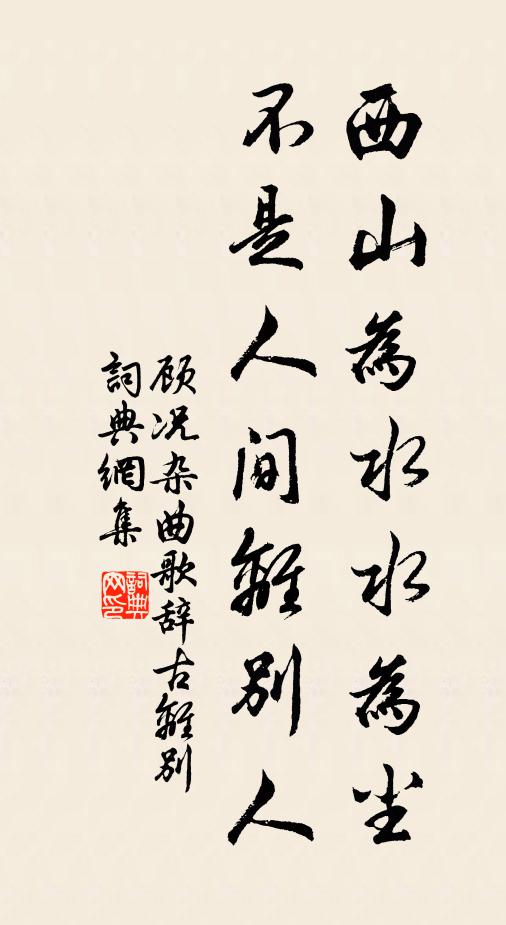 西山為水水為尘
不是人间離别人
顾况杂曲歌辞古離别
詞典網集
詞典网印